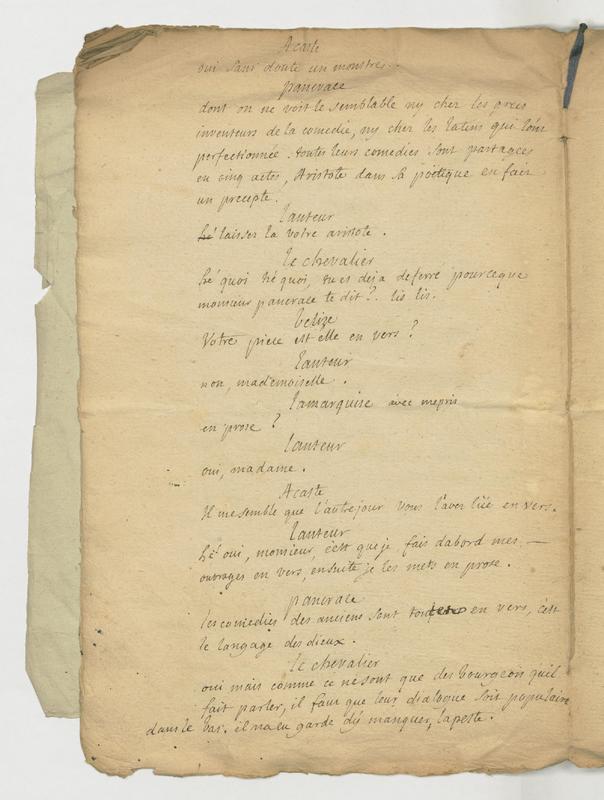 Acaste
oui sans doute un monstre..
pancrace
dont on ne voit le semblable ny chez les grecs
inventeurs de la comedie, ny chez les latins qui l'ont
perfectionnée. toutes leurs comedies sont partagées
en cinq actes, Aristote dans sa poëtique en fait
un precepte.
l'auteur
hé laissez la votre aristote.
le chevalier
hé quoi hé quoi, tu es deja deferré pourceque
monsieur pancrace te dit? lis lis.
belize
Votre piece est elle en vers?
l'auteur
non, mademoiselle.
la marquise avec mepris
en prose?
l'auteur
oui, madame.
Acaste
Il me semble que l'autre jour vous l'avez lüe en vers.
l'auteur
hé oui, monsieur, c'est que je fais dabord mes —
ouvrages en vers, ensuite je les mets en prose.
pancrace
les comedies des anciens sont en vers, c'est
le langage des dieux.
le chevalier
oui mais comme ce ne sont que des bourgeois quil
fait parler, il faut que leur dialogue soit populaire
dans le bas. il na eu garde dy manquer, la peste.